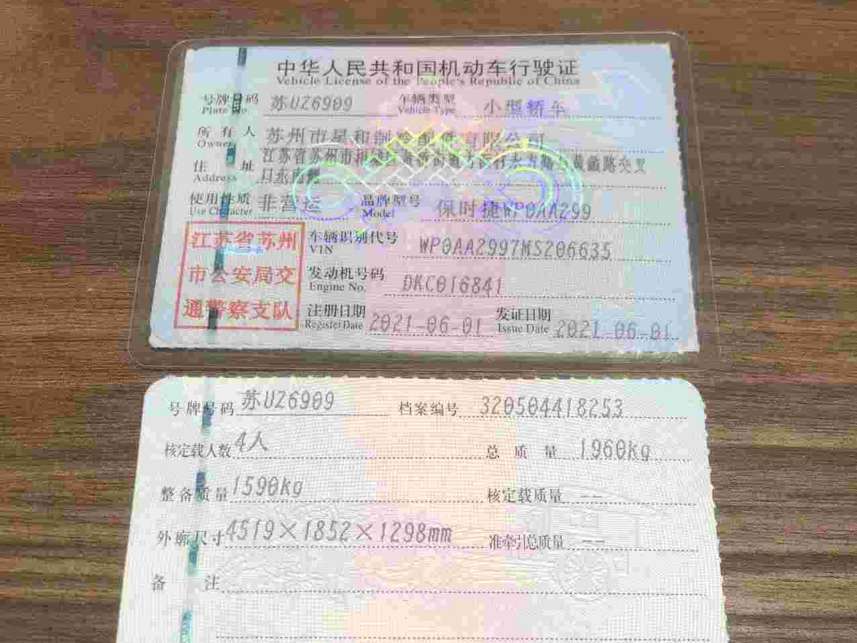 中华人民共和国机动车行驶证
Vehicle License of the People's Republic of China
号牌号码 苏UZ6909 车辆类型 小型轿车
Plate No. Vehicle Type
所有人 苏州市星和 有限公司
Owner
住址 江苏省苏州市相 交叉
Address 口东南侧
使用性质 非营运 品牌型号 保时捷WP0AA299
Use Character Model
江苏省苏州 车辆识别代号 WP0AA2997MS206635
VIN
市公安局交 发动机号码 DKC016841
Engine No.
通警察支队 注册日期 2021-06-01 发证日期 2021-06-01
Register Date Issue Date
号牌号码 苏UZ6909 档案编号 320504418253
核定载人数 4人 总质量 1960kg
整备质量 1590kg 核定载质量 --
外廓尺寸 4519×1852×1298mm 准牵引总质量 --
备注